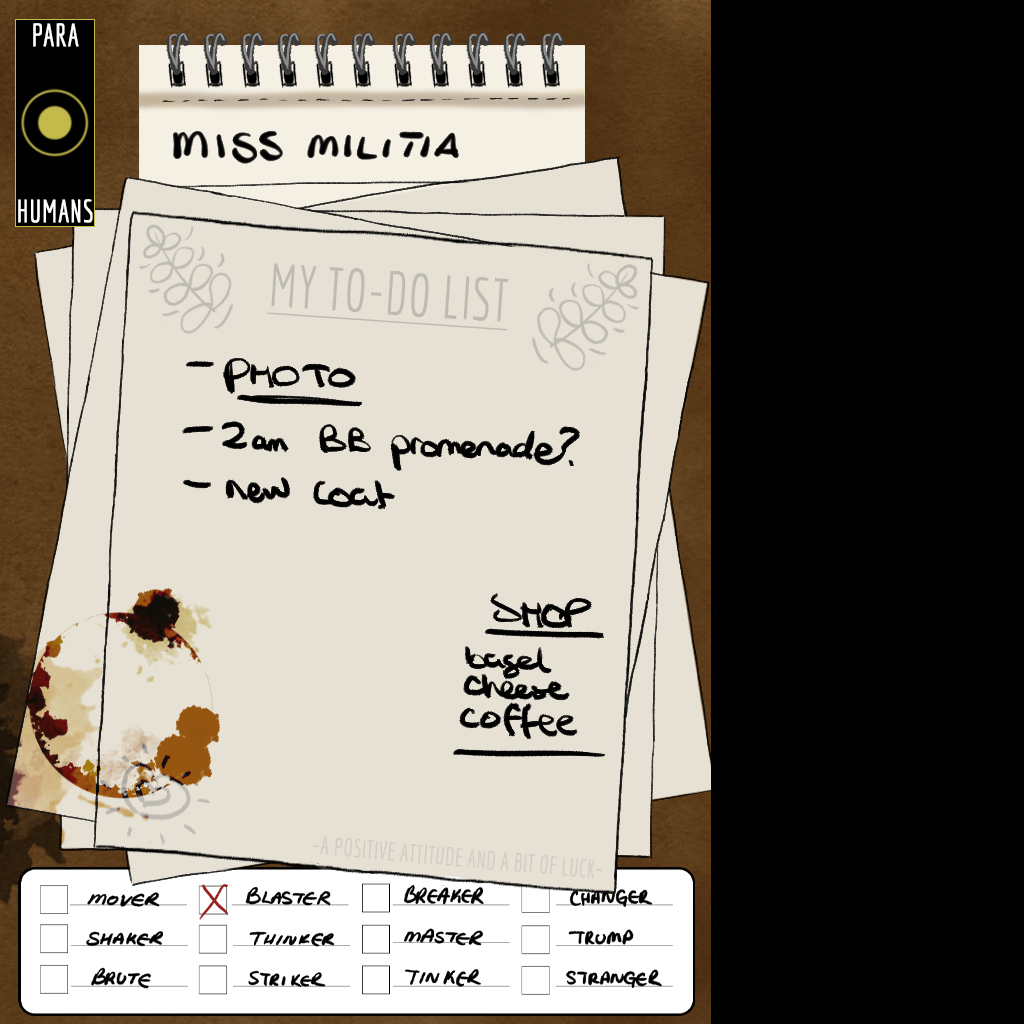 PARA
HUMANS
MISS MILITIA
MY TO-DO LIST
- PHOTO
- 2am BB promenade?
- new coat
SHOP
bagel
cheese
coffee
-A POSITIVE ATTITUDE AND A BIT OF LUCK-
MOVER BLASTER BREAKER CHANGER
SHAKER THINKER MASTER TRUMP
BRUTE STRIKER TINKER STRANGER